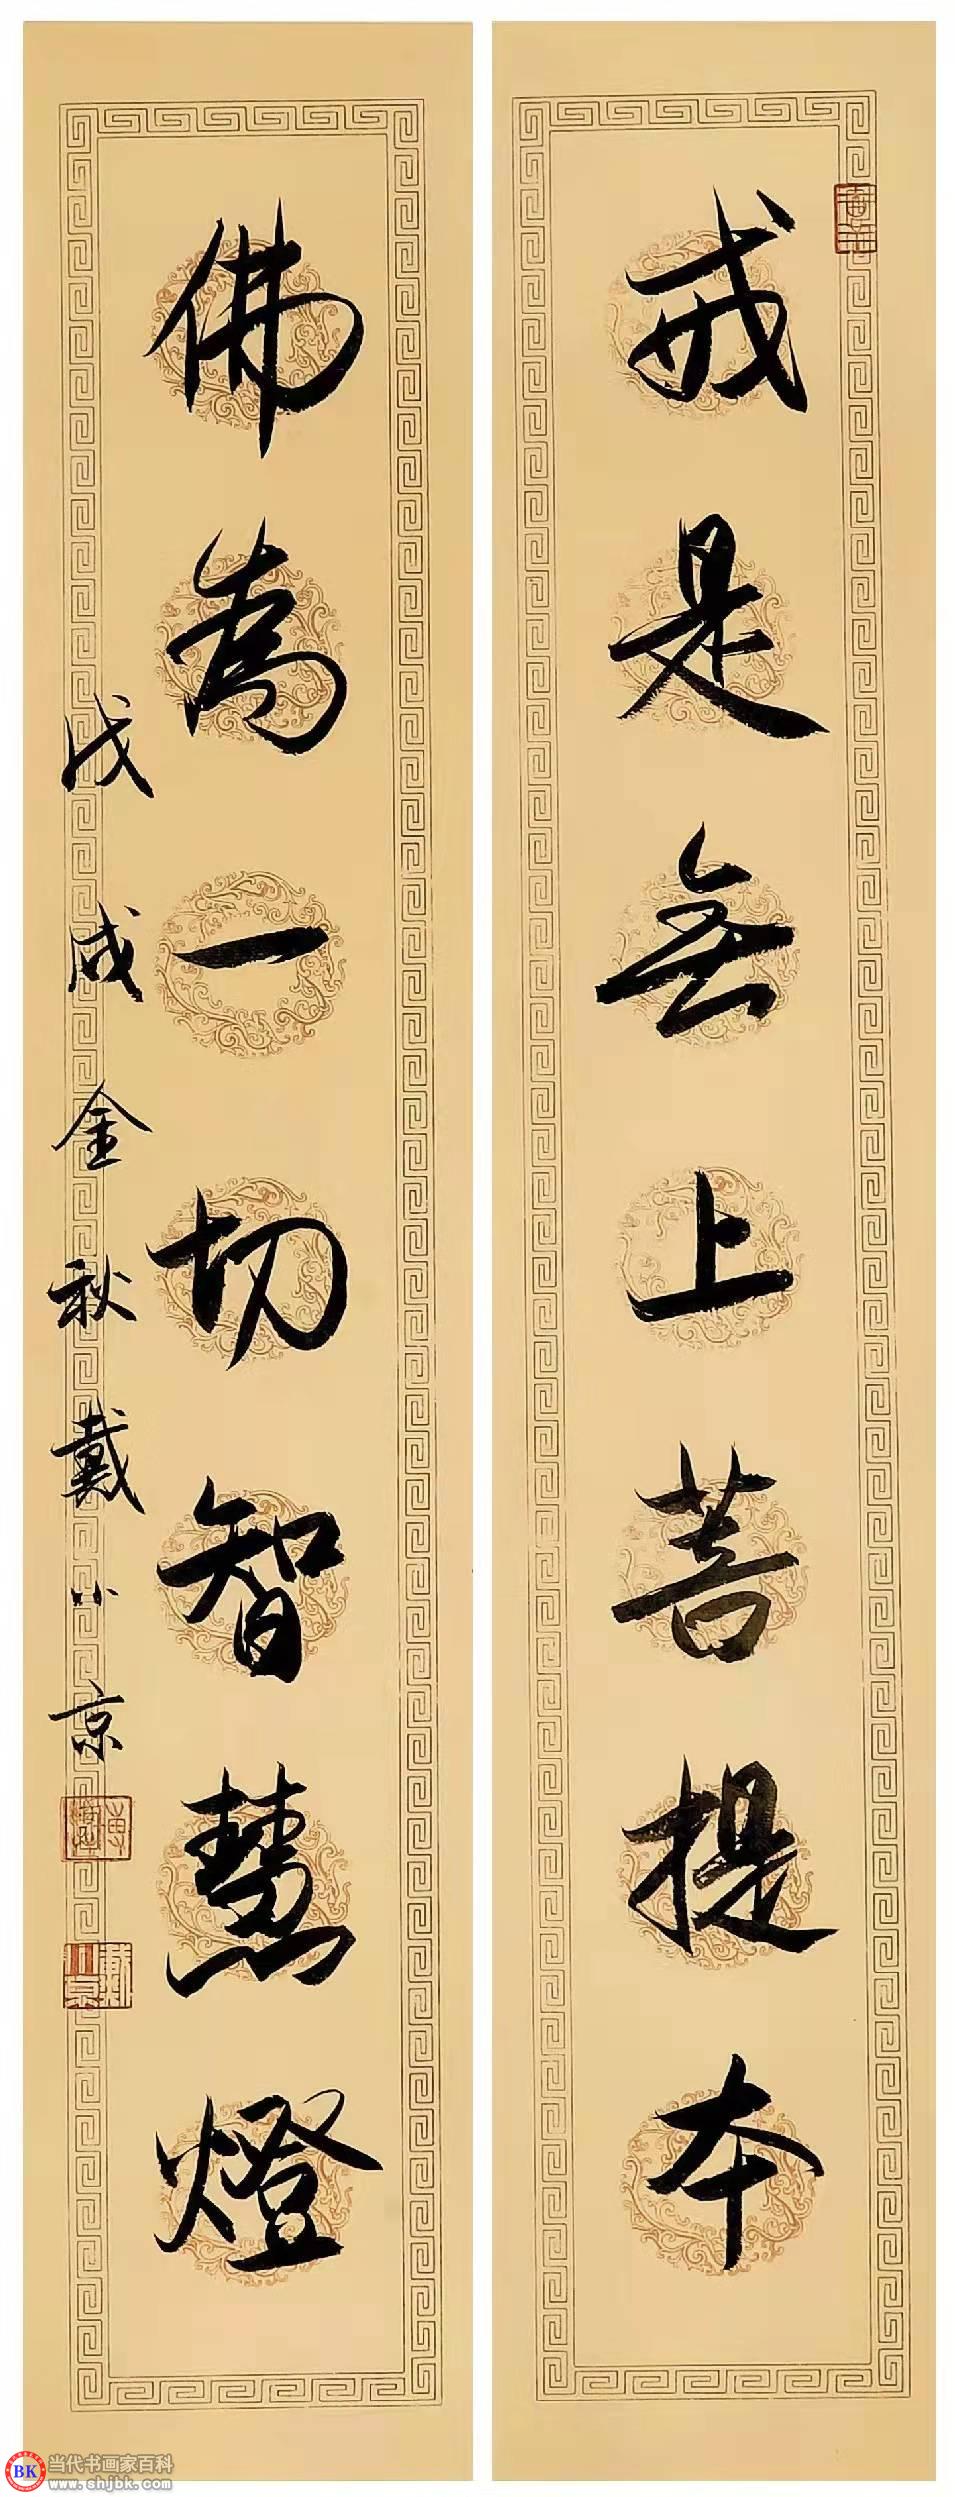 戒是无上菩提本
佛為一切智慧燈
戊戌金秋戴小京
戴小京
BK
当代书画家百科
www.shjbk.com